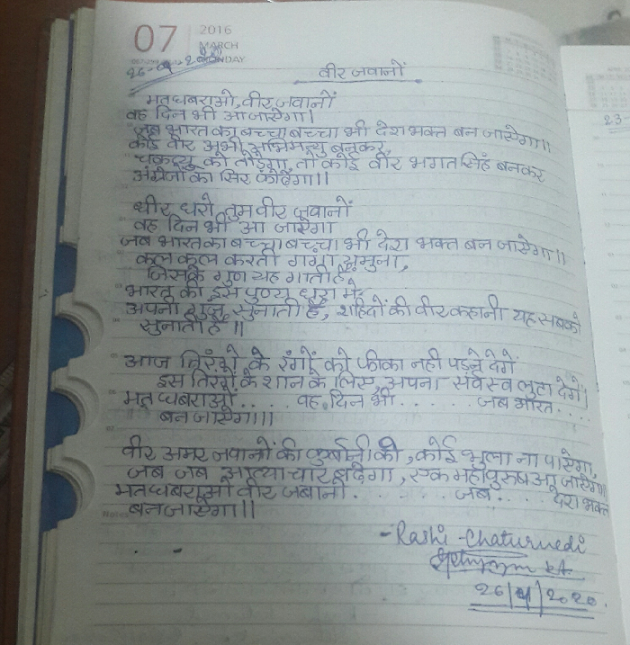 07
2016
MARCH
MONDAY
वीर जवानों
मत घबराओ, वीर जवानों
वह दिन भी आ जाएगा।
जब भारत का बच्चा बच्चा भी देश भक्त बन जाएगा।।
कोई वीर अभी अभिमन्यु बनकर
चक्रव्यू को तोड़ेगा, तो कोई वीर भगत सिंह बनकर
अंग्रेजों का सिर फोड़ेगा।।
धीर धरो तुम वीर जवानों
वह दिन भी आ जाएगा
जब भारत का बच्चा बच्चा भी देश भक्त बन जाएगा।।
कल कल करती गंगा यमुना,
जिसके गुण यह गाती है,
भारत की इस पुण्य धरा में
अपना सुनाती है, शहिदों की वीर कहानी यह सबको
सुनाती है ॥
आज तिरंगे के रंगों को फीका नही पड़ने देगें
इस तिरंगे के शान के लिए, अपना सर्वस्व लुटा देगें।
मत घबराओ.... वह दिन भी...... जब भारत....
बन जाएगा।।
वीर अमर जवानों की कुर्बानी को, कोई भुला ना पाएगा,
जब जब अत्याचार बढेगा, एक महापुरुष आ जाएगा।।
मत घबराओ वीर जवानों........ जब.... देश भक्त
बन जाएगा।।
- Rashi Chaturvedi
26/4/2020
23-